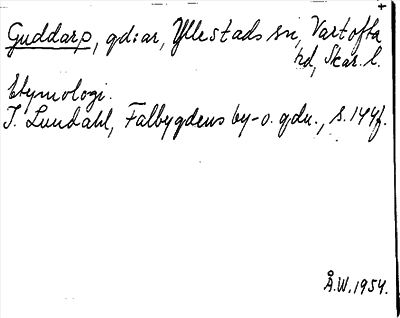 Guddarp, gd:ar, Yllestads sn, Vartofta
hd, Skar. l.
Etymologi.
I. Lundahl, Falbygdens by-o. gdn., s. 144f.
Å.W. 1954.